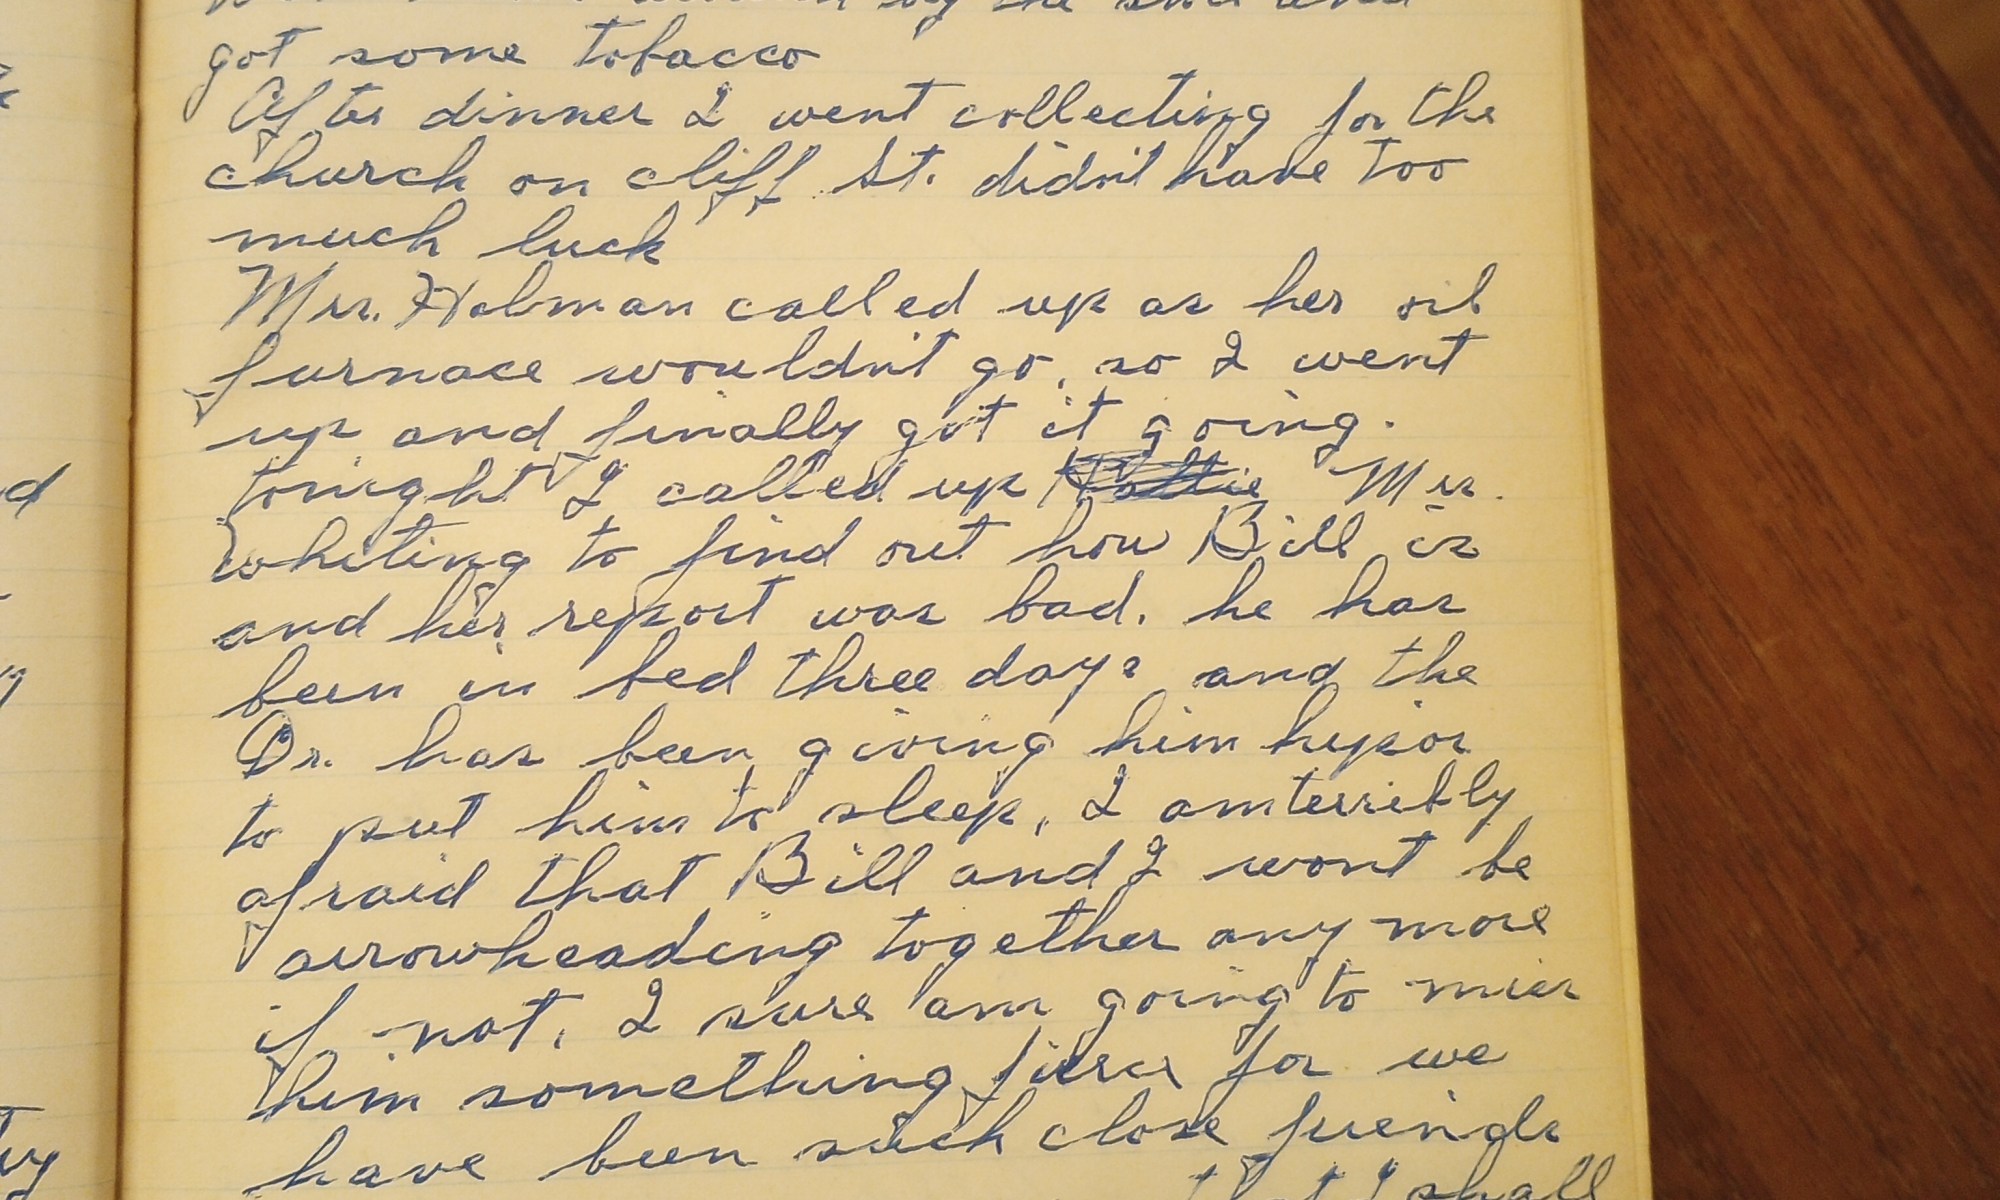 by the store and
got some tobacco
After dinner I went collecting for the
church on cliff St. didn't have too
much luck
Mrs. Holman called up as her oil
furnace wouldn't go, so I went
up and finally got it going.
tonight I called up Mrs.
whiting to find out how Bill is
and her report was bad. he has
been in bed three days and the
Dr. has been giving him hypos
to put him to sleep, I am terribly
afraid that Bill and I wont be
arrowheading together any more
if not, I sure am going to miss
him something fierce for we
have been such close friends
that I shall